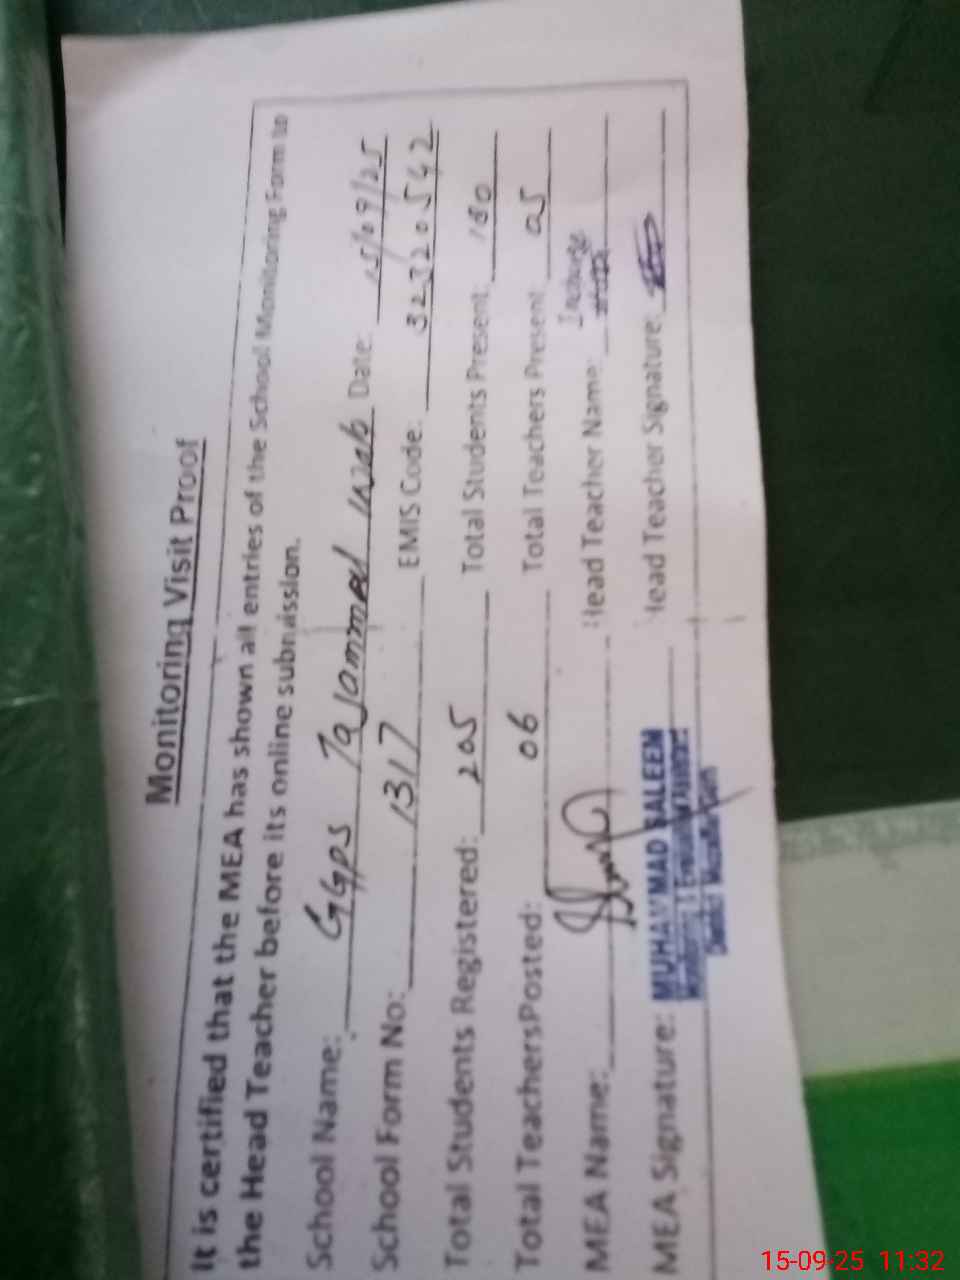 Monitoring Visit Proof
It is certified that the MEA has shown all entries of the School Monitoring Form to
the Head Teacher before its online submission.
School Name: GGPS Tajammal Date: 15/09/25
School Form No: 1317 EMIS Code: 32320542
Total Students Registered: 205 Total Students Present: 180
Total TeachersPosted: 06 Total Teachers Present: 05
MEA Name: Head Teacher Name: Incharge
MEA Signature: Head Teacher Signature:
MUHAMMAD SALEEM
Monitoring & Evaluation Assistant
District Muzaffargarh
15-09-25 11:32